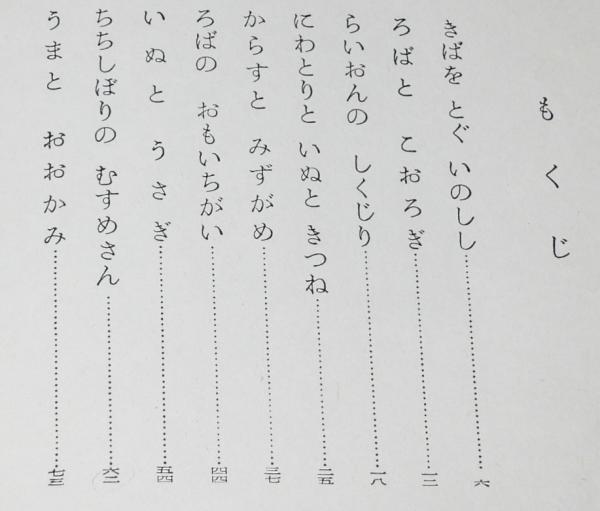 もくじ
きばを とぐ いのしし…………六
ろばと こおろぎ…………一二
らいおんの しくじり…………一八
にわとりと いぬと きつね…………二五
からすと みずがめ…………三七
ろばの おもいちがい…………四四
いぬと うさぎ…………五四
ちちしぼりの むすめさん…………六二
うまと おおかみ…………七三